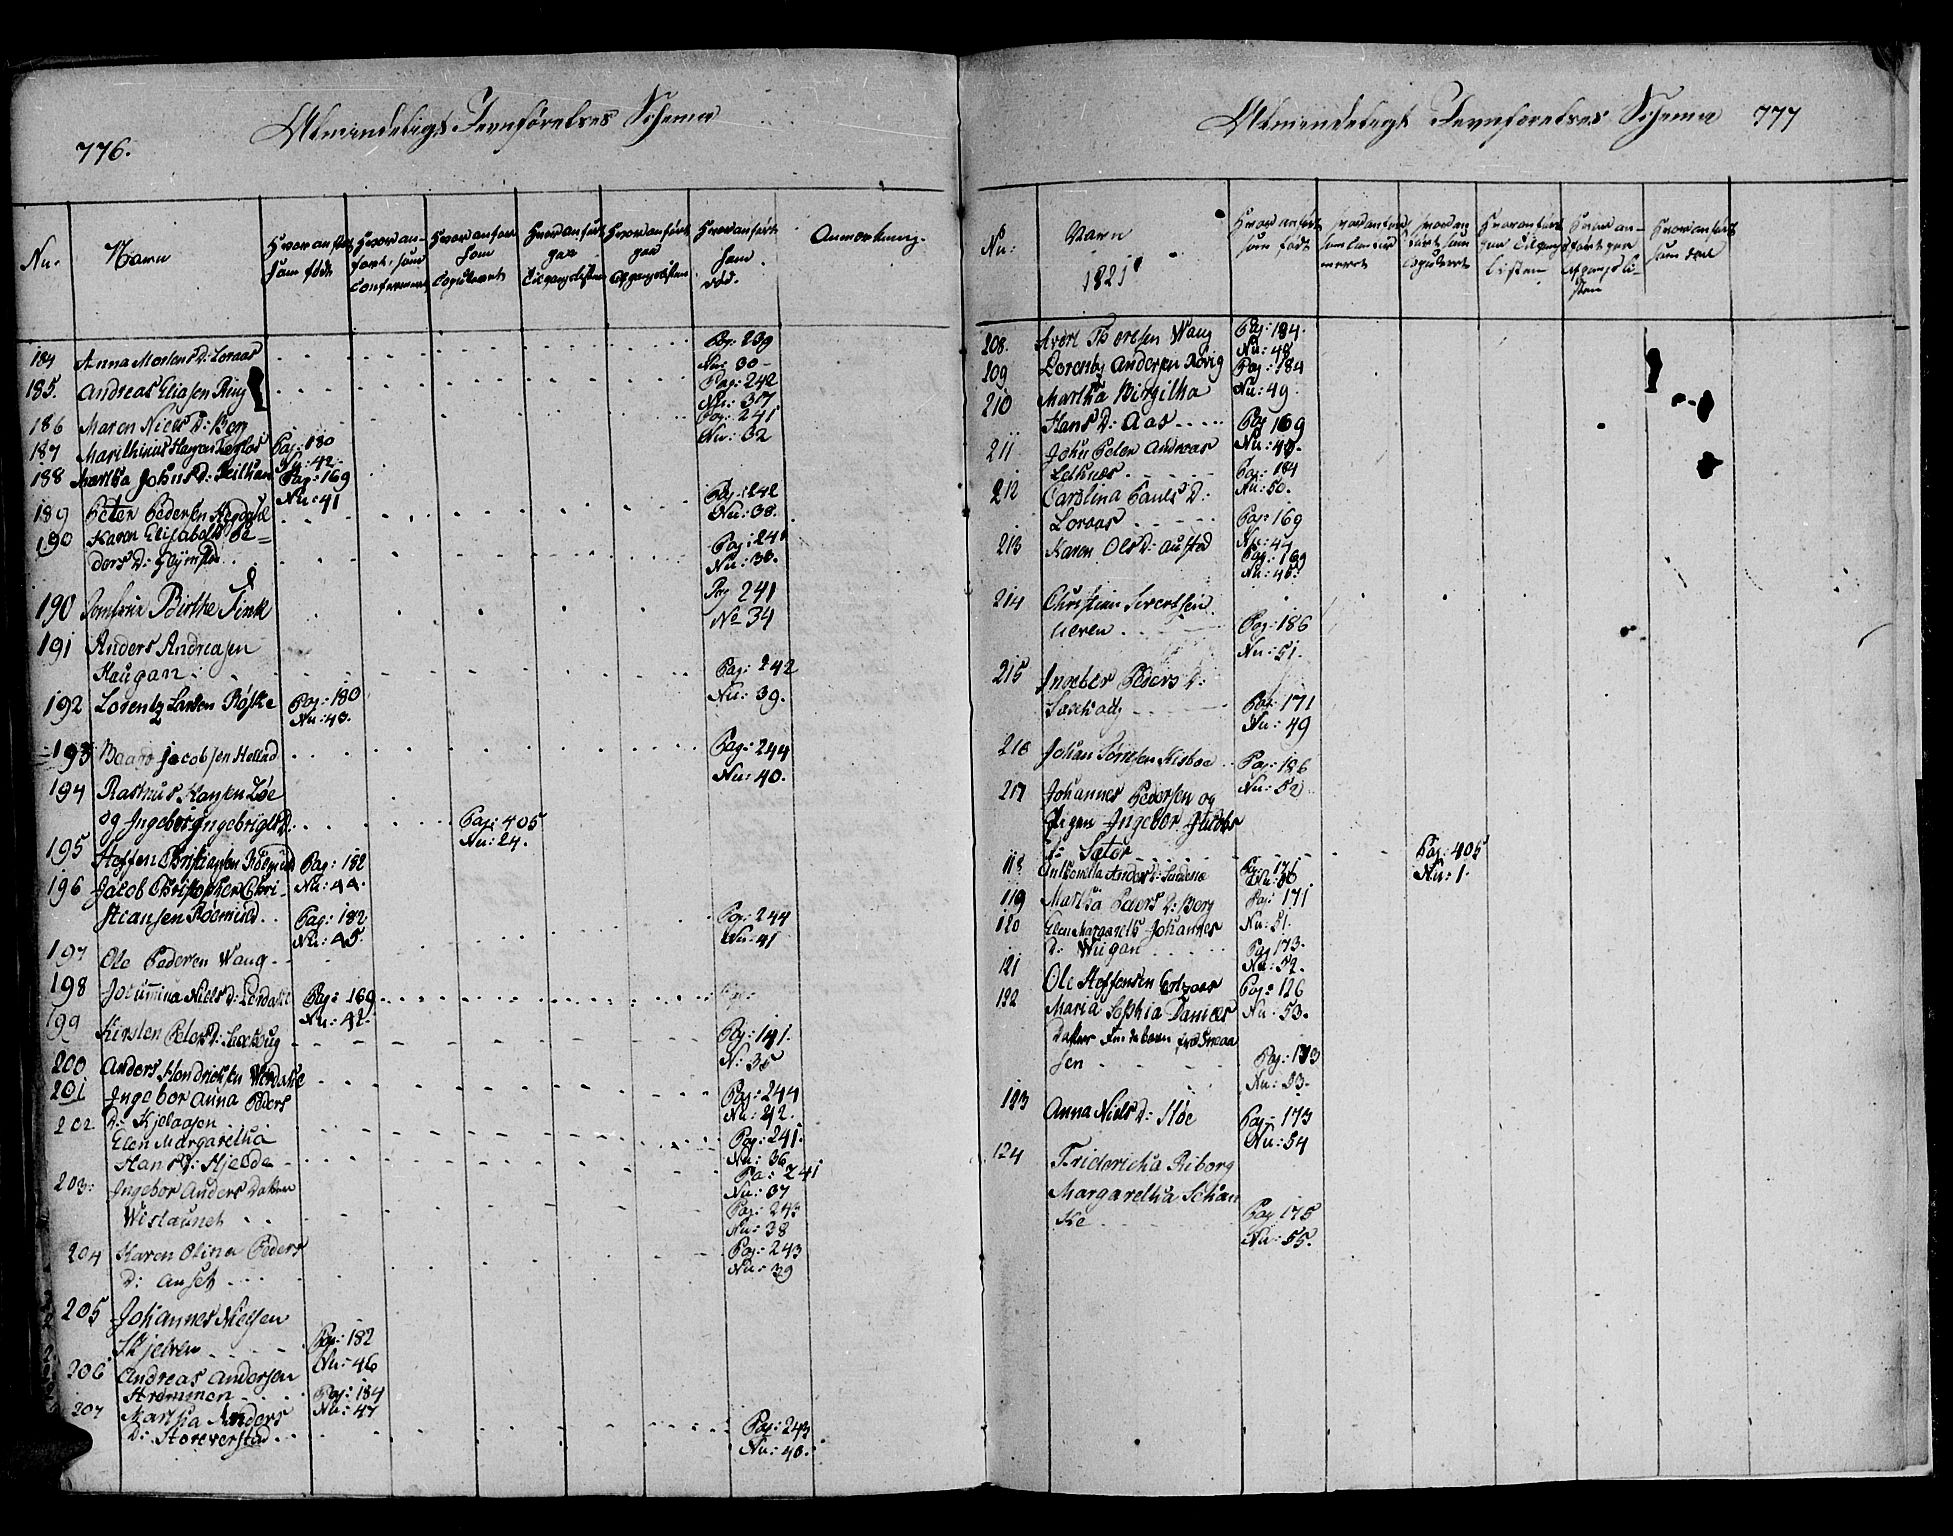 776.
Almindeligt Jevnførelses Schema
Nu. Navn Hvor anført som fødte Hvor anført som Confirmeret Hvor anført som Copuleret Hvor anført paa Tilgangslisten Hvor anført paa Afgangslisten Hvor anført som død. Anmærkning.
184 Anna Mortens D: Loraas Pag: 239
Nu: 30
185. Andreas Eliasen Ring Pag: 242
Nu: 37
186 Maren Niels D: Berg Pag: 241
Nu: 32
187 Hansen Pag: 180
Nu: 42
188 Martha Johns D: Pag: 169
Nu: 41
189 Peter Pedersen Pag: 242
Nu: 38.
190 Karen Elisabeth Pe=
ders D: Pag: 241
Nu: 33.
190 Birthe Fink Pag 241
No 34
191 Anders Andreasen
Haugan Pag: 242
Nu: 39.
192 Lorentz Larsen Røske Pag: 180
Nu: 43.
193 Baard Jacobsen Hellad Pag: 244
Nu: 40.
194 Rasmus Hansen Løe
og Ingebor Ingebrigts D: Pag: 405
Nu: 24.
195 Steffen Christiansen Pag: 182
Nu: 44.
196 Jacob Christopher Chri-
stiansen Pag: 182
Nu: 45.
197 Ole Pedersen Waug Pag: 244
Nu: 41
198 Niels D: Pag: 169
Nu: 42.
199 Kirsten Peters D: Pag: 141.
N: 35
200 Anders Hendricksen Pag: 244
Nu: 42.
201 Ingebor Anna Peders
D: Kjelaasen Pag: 241.
Nu: 36
202 Elen Margaretha
Hans D: Hjelde Pag: 241
Nu: 37
203: Ingebor Anders Datter
Wislaunet Pag: 243
Nu: 38
204 Karen Olina Peders
D: Auset Pag: 243
Nu: 39
205 Johannes Nielsen
Skjelven Pag: 182
Nu: 46
206 Andreas Andersen
Strømmen Pag: 184
Nu: 47
207 Martha Anders
D: Storeverstad Pag: 243
Nu: 40.
Almindeligt Jevnførelses Schema 777
Nu: Navn 1821 Hvor anført som født Hvor anført som Confirmeret Hvor anført som Copuleret Hvor anført paa Tilgangslisten Hvor anført paa Afgangslisten Hvor anført som død
208. Thoresen Waug Pag: 184.
Nu: 48
209 Lorentz Andersen Røvig Pag: 184
Nu: 49.
210 Martha Birgitha
Hans D: Aas Pag 169
Nu: 43.
211 John Peter Andreas
Pag: 184
Nu: 50.
212 Carolina Pauls D:
Loraas Pag: 169
Nu: 47
213 Karen Ols D: Austad Pag: 169
Nu: 48.
214 Christian Sivertsen
Pag: 186
Nu: 51.
215 Ingebor Peders D:
Pag: 171
Nu: 49
216 Johan Pag: 186
Nu: 52
217 Johannes Pedersen og
Pigen Ingebor Jacobs
D: Sæter Pag: 405
Nu: 1.
118 Anders D: Pag: 171
Nu: 50
119 Martha Peders D: Berg Pag: 171
Nu: 51.
120 Elen Margareth Johannes
D: Wugan Pag 173.
Nu: 52.
121 Ole Steffensen Pag: 126
Nu: 53.
122 Maria Sophia Daniels
Datter
sen Pag: 173
Nu: 53.
123 Anna Niels D: Pag: 173
Nu: 54
124 Fridericha Biborg
Margaretha Schan
ke Pag 175
Nu: 55.